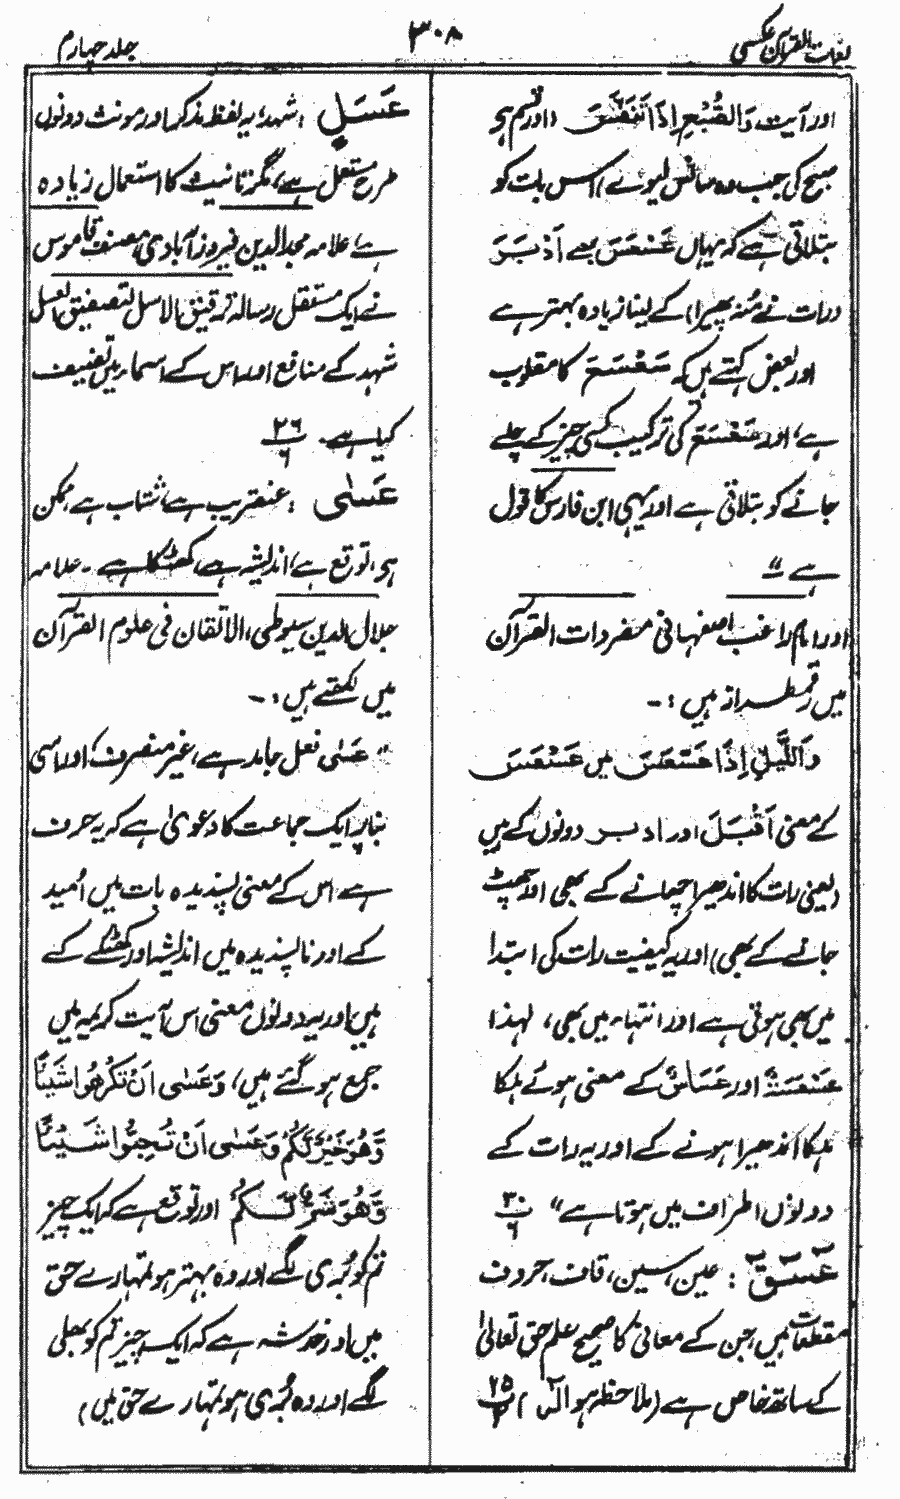 لغات القرآن عکسی
۳۰۸
جلد چہارم
اور آیت وَالصُّبْحِ اِذَا تَنَفَّسَ (اور قسم ہی
صبح کی جب وہ سانس لیوے) اس بات کو
بتلاتی ہے کہ یہاں عَسْعَسَ بمعنے اَدْبَرَ
(رات نے مُنہ پھیرا) کے لینا زیادہ بہتر ہے
اور بعض کہتے ہیں کہ سَعْسَعَ کا مقلوب
ہے، اور عَسْعَسَ کی ترکیب کسی چیز کے چلے
جانے کو بتلاتی ہے اور یہی ابن فارس کا قول
ہے ؂
اور امام راغب اصفہانی مفردات القرآن
میں رقمطراز ہیں :-
وَاللَّیْلِ اِذَا عَسْعَسَ میں عَسْعَسَ
کے معنی اَقْبَلَ اور ادبر دونوں کے ہیں
(یعنی رات کا اندھیرا چھانے کے بھی اور چھٹ
جانے کے بھی) اور یہ کیفیت رات کی ابتدا
میں بھی ہوتی ہے اور انتہاء میں بھی، لہذا
عَسْعَسَۃٌ اور عَسَاسٌ کے معنی ہوئے ہلکا
ہلکا اندھیرا ہونے کے اور یہ رات کے
دونوں اطراف میں ہوتا ہے" ۳۰/۶
عٓسٓقٓ : عین، سین، قاف، حروف
مقطعات ہیں، جن کے معانی کا صحیح علم حق تعالیٰ
کے ساتھ خاص ہے (ملاحظہ ہو الٓمٓ) ۲۵/۲
عَسَلٍ : شہد، یہ لفظ مذکر اور مونث دونوں
طرح مستعمل ہے، مگر تانیث کا استعمال زیادہ
ہے علامہ مجدالدین فیروزآبادی، مصنف قاموس
نے ایک مستقل رسالہ ترقیق الاسل لتصفیق العسل
شہد کے منافع اور اس کے اسماء میں تصنیف
کیا ہے۔ ۲۶/۶
عَسٰی : عنقریب ہے، شتاب ہے، ممکن
ہی، توقع ہے، اندیشہ ہے، کھٹکا ہے۔ علامہ
جلال الدین سیوطی، الاتقان فی علوم القرآن
میں لکھتے ہیں :-
"عَسٰی فعل جامد ہے، غیر منصرف، اور اسی
بنا پر ایک جماعت کا دعویٰ ہے کہ یہ حرف
ہے اس کے معنی پسندیدہ بات میں اُمید
کے اور ناپسندیدہ میں اندیشہ اور کھٹکے کے
ہیں، اور یہ دونوں معنی اس آیت کریمہ میں
جمع ہو گئے ہیں، وَعَسٰی اَنْ تَکْرَھُوْا شَیْئًا
وَّھُوَ خَیْرٌ لَّکُمْ وَعَسٰی اَنْ تُحِبُّوْا شَیْئًا
وَّھُوَ شَرٌّ لَّکُمْ اور توقع ہے کہ ایک چیز
تم کو بُری لگے اور وہ بہتر ہو تمہارے حق
میں اور خدشہ ہے کہ ایک چیز تم کو بھلی
لگے اور وہ بُری ہو تمہارے حق میں)